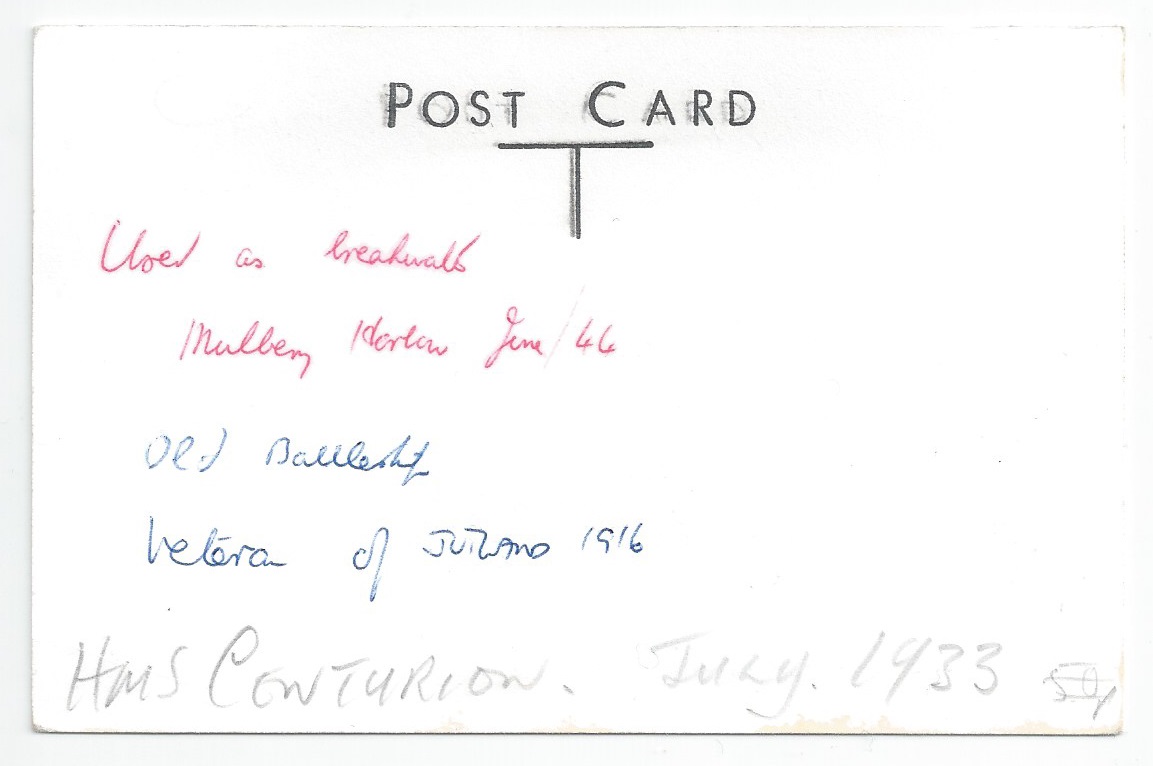 POST CARD
Used as breakwater
Mulberry Harbour June/44
Old Battleship
Veteran of JUTLAND 1916
HMS CENTURION. JULY. 1933